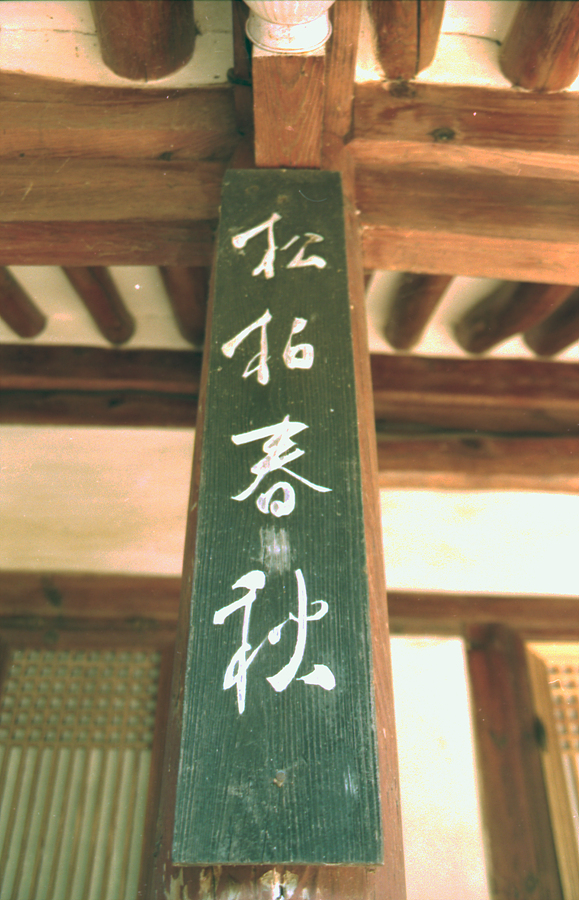 松柏春秋